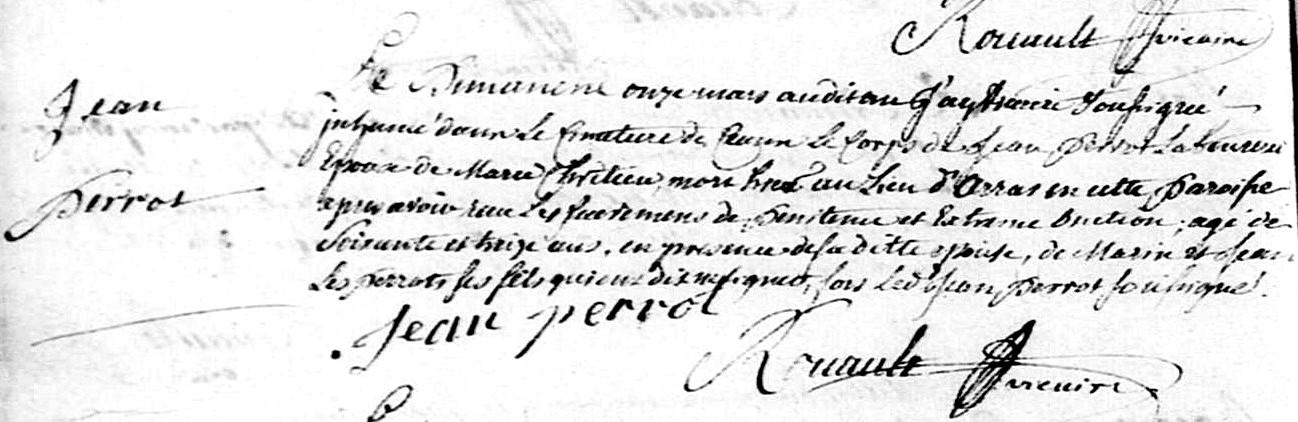 Rouault vicaire
Jean
Perrot
Le Dimanche onze mars audit an J'ay vicaire Soussigné
inhumé dans Le Cimetiere de Le Corps de Jean Perrot Laboureur
Epoux de Marie Chrétien, mort hier au Lieu d'Arras en cette Paroisse
apres avoir reçu Les Sacremens de Penitence et Extreme Onction, agé de
Soixante et treize ans, en presence de sa ditte epouse, de Marin et Jean
Les perrots ses fils qui ont dit ne signer, fors Ledt Jean Perrot soussigné.
Jean perrot
Rouault vicaire